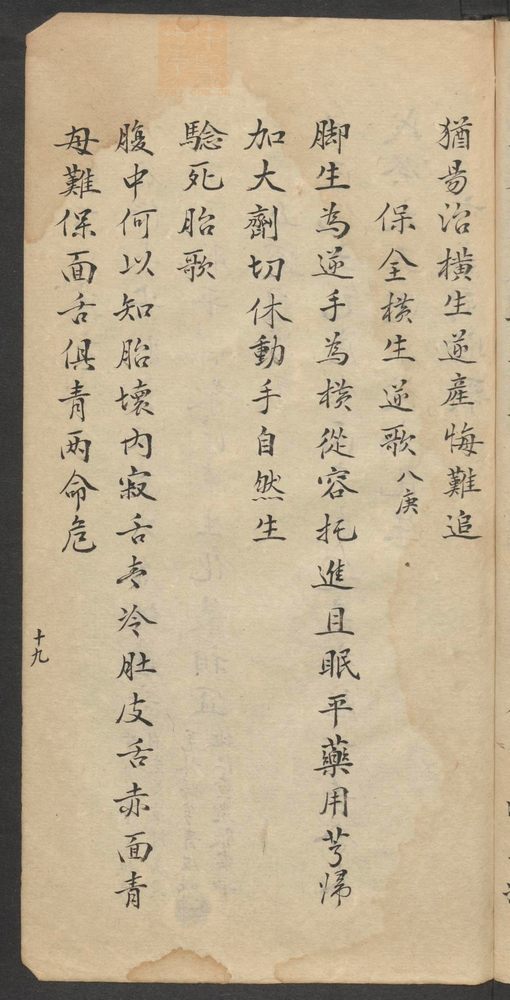 猶易治横生逆產悔難追
保全横生逆歌 八庚
脚生為逆手為横從容托進且眠平藥用芎歸
加大劑切休動手自然生
驗死胎歌
腹中何以知胎壞内寂舌青冷肚皮舌赤面青
母難保面舌俱青两命危
十九